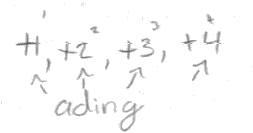 1 2 3 4
+1, +2, +3, +4
ading